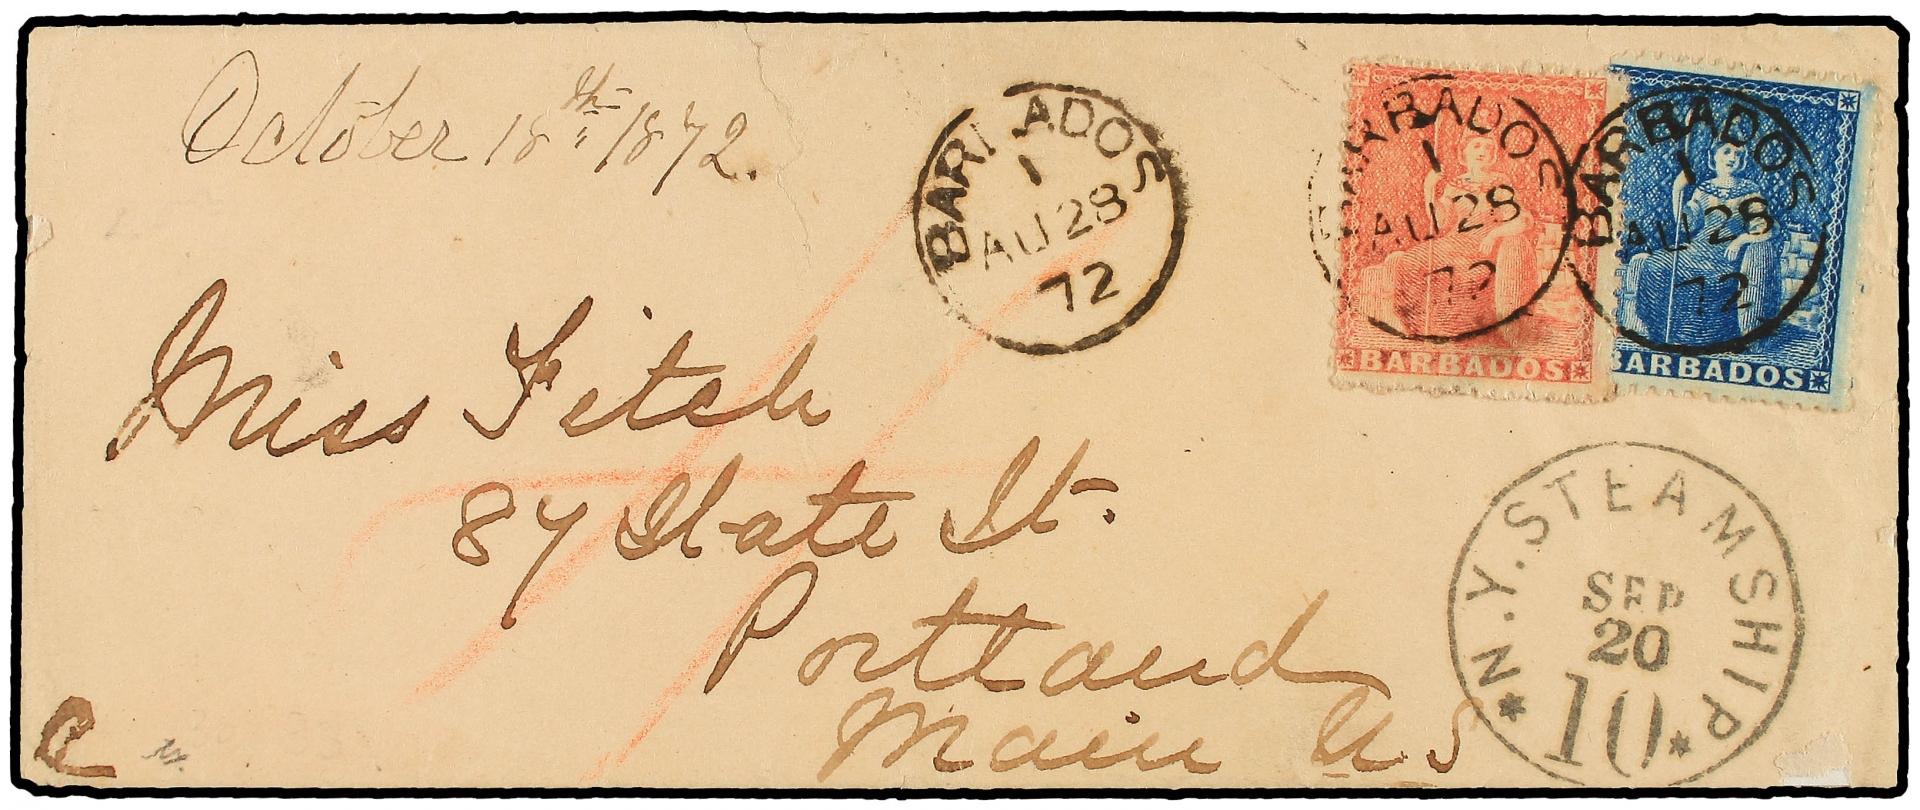 October 18th 1872.
BARBADOS
1
AU 28
72
BARBADOS
1
AU 28
72
BARBADOS
BARBADOS
1
AU 28
72
BARBADOS
Miss Fitch
87 State St.
Portland
Main U S
N.Y. STEAMSHIP
SEP
20
10